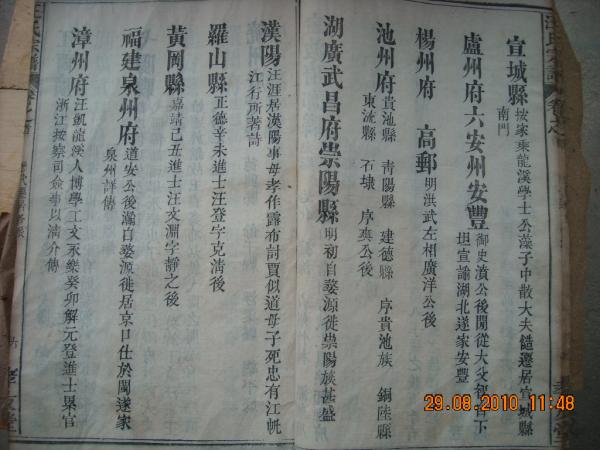 宣城縣 按家乘龍溪學士公藻子中散大夫 遷居宣城縣
南門
盧州府六安州安豐 御史濆公後閒從大父 官下
坦宣諭湖北遂家安豐
楊州府 高郵 明洪武左相廣洋公後
池州府 貴池縣 青陽縣 建德縣 序貴池族 銅陵縣
東流縣 石埭 序奐公後
湖廣武昌府崇陽縣 明初自婺源徙崇陽族甚盛
漢陽 汪涯居漢陽事母孝作露布討賈似道母子死忠有江帆
江行所著詩
羅山縣 正德辛未進士汪登字克清後
黃岡縣 嘉靖己丑進士汪文淵字靜之後
福建泉州府 道安公後瀚自婺源徙居京口仕於閩遂家
泉州詳傳
漳州府 汪凱龍溪人博學工文永樂癸卯解元登進士累官
浙江按察司僉事以清介傳
29.08.2010 11:48